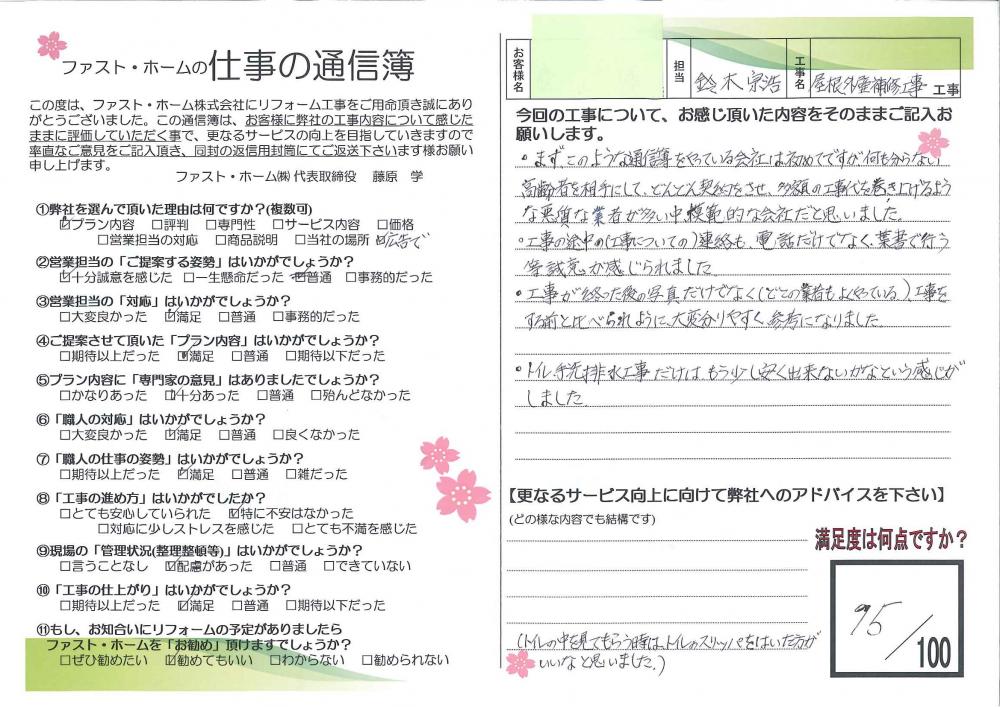 ファスト・ホームの仕事の通信簿
この度は、ファスト・ホーム株式会社にリフォーム工事をご用命頂き誠にあり
がとうございました。この通信簿は、お客様に弊社の工事内容について感じた
ままに評価していただく事で、更なるサービスの向上を目指していきますので
率直なご意見をご記入頂き、同封の返信用封筒にてご返送下さいます様お願い
申し上げます。
ファスト・ホーム㈱ 代表取締役 藤原 学
①弊社を選んで頂いた理由は何ですか？(複数可)
☑プラン内容 □評判 □専門性 □サービス内容 □価格
□営業担当の対応 □商品説明 □当社の場所 ☑広告で
②営業担当の「ご提案する姿勢」はいかがでしょうか？
☑十分誠意を感じた □一生懸命だった ☑普通 □事務的だった
③営業担当の「対応」はいかがでしょうか？
□大変良かった ☑満足 □普通 □事務的だった
④ご提案させて頂いた「プラン内容」はいかがでしょうか？
□期待以上だった ☑満足 □普通 □期待以下だった
⑤プラン内容に「専門家の意見」はありましたでしょうか？
□かなりあった ☑十分あった □普通 □殆んどなかった
⑥「職人の対応」はいかがでしょうか？
□大変良かった ☑満足 □普通 □良くなかった
⑦「職人の仕事の姿勢」はいかがでしょうか？
□期待以上だった ☑満足 □普通 □雑だった
⑧「工事の進め方」はいかがでしたか？
□とても安心していられた ☑特に不安はなかった
□対応に少しストレスを感じた □とても不満を感じた
⑨現場の「管理状況(整理整頓等)」はいかがでしょうか？
□言うことなし ☑配慮があった □普通 □できていない
⑩「工事の仕上がり」はいかがでしょうか？
□期待以上だった ☑満足 □普通 □期待以下だった
⑪もし、お知合いにリフォームの予定がありましたら
ファスト・ホームを「お勧め」頂けますでしょうか？
□ぜひ勧めたい ☑勧めてもいい □わからない □勧められない
お客様名 担当 鈴木宗浩 工事名 屋根外壁補修工事 工事
今回の工事について、お感じ頂いた内容をそのままご記入お
願いします。
・まずこのような通信簿をやっている会社は初めてですが、何も分らない
高齢者を相手にして、どんどん契約をさせ、多額の工事代を巻き上げるよう
な悪質な業者が多い中模範的な会社だと思いました。
・工事の途中の(工事についての)連絡も、電話だけでなく、葉書で行う
等誠意が感じられました
・工事が終った後の写真だけでなく(どこの業者もよくやっている)工事を
する前と比べられように、大変分りやすく、参考になりました
・トイレ手洗排水工事だけは、もう少し安く出来ないかなという感じが
しました
【更なるサービス向上に向けて弊社へのアドバイスを下さい】
(どの様な内容でも結構です)
満足度は何点ですか？
95/100
(トイレの中を見てもらう時は、トイレのスリッパをはいた方が
いいなと思いました。)